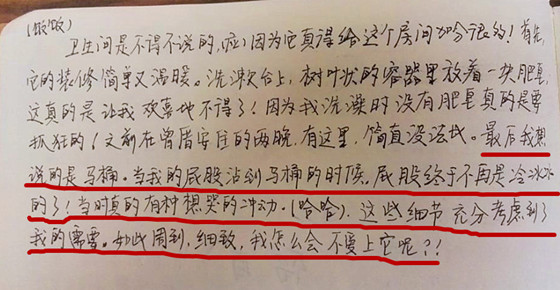 (饭饭)
卫生间是不得不说的,因为它真得给这个房间加分很多!首先,
它的装修简单又温暖。洗漱台上,树叶状的容器里放着一块肥皂,
这真的是让我欢喜地不得了!因为我洗澡时没有肥皂真的是要
抓狂的(之前在普吉住的两晚,有这里,简直没法找。最后我想
说的是马桶。当我的屁股沾到马桶的时候,屁股终于不再是冷冰冰
的了!当时真的有种想哭的冲动。(哈哈)。这些细节充分考虑到了
我的需要。如此周到,细致,我怎么会不爱上它呢?!